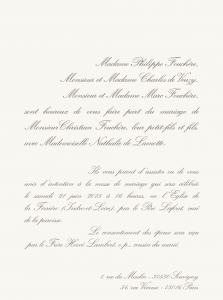 Madame Philippe Fouchère,
Monsieur et Madame Charles de Vouzy,
Monsieur et Madame Marc Fouchère,
sont heureux de vous faire part du mariage de
Monsieur Christian Fouchère, leur petit-fils et fils,
avec Mademoiselle Nathalie de Lamotte.
Ils vous prient d'assister ou de vous
unir d'intention à la messe de mariage qui sera célébrée
le samedi 21 juin 2013 à 16 heures, en l'Église de
la Ferrière (Indre-et-Loire), par le Père Lefort, curé
de la paroisse.
Le consentement des époux sera reçu
par le Frère Hervé Lambert, s.p., cousin du marié.
1, rue du Moulin - 37530 Souvigny
34, rue Vienne - 75116 Paris